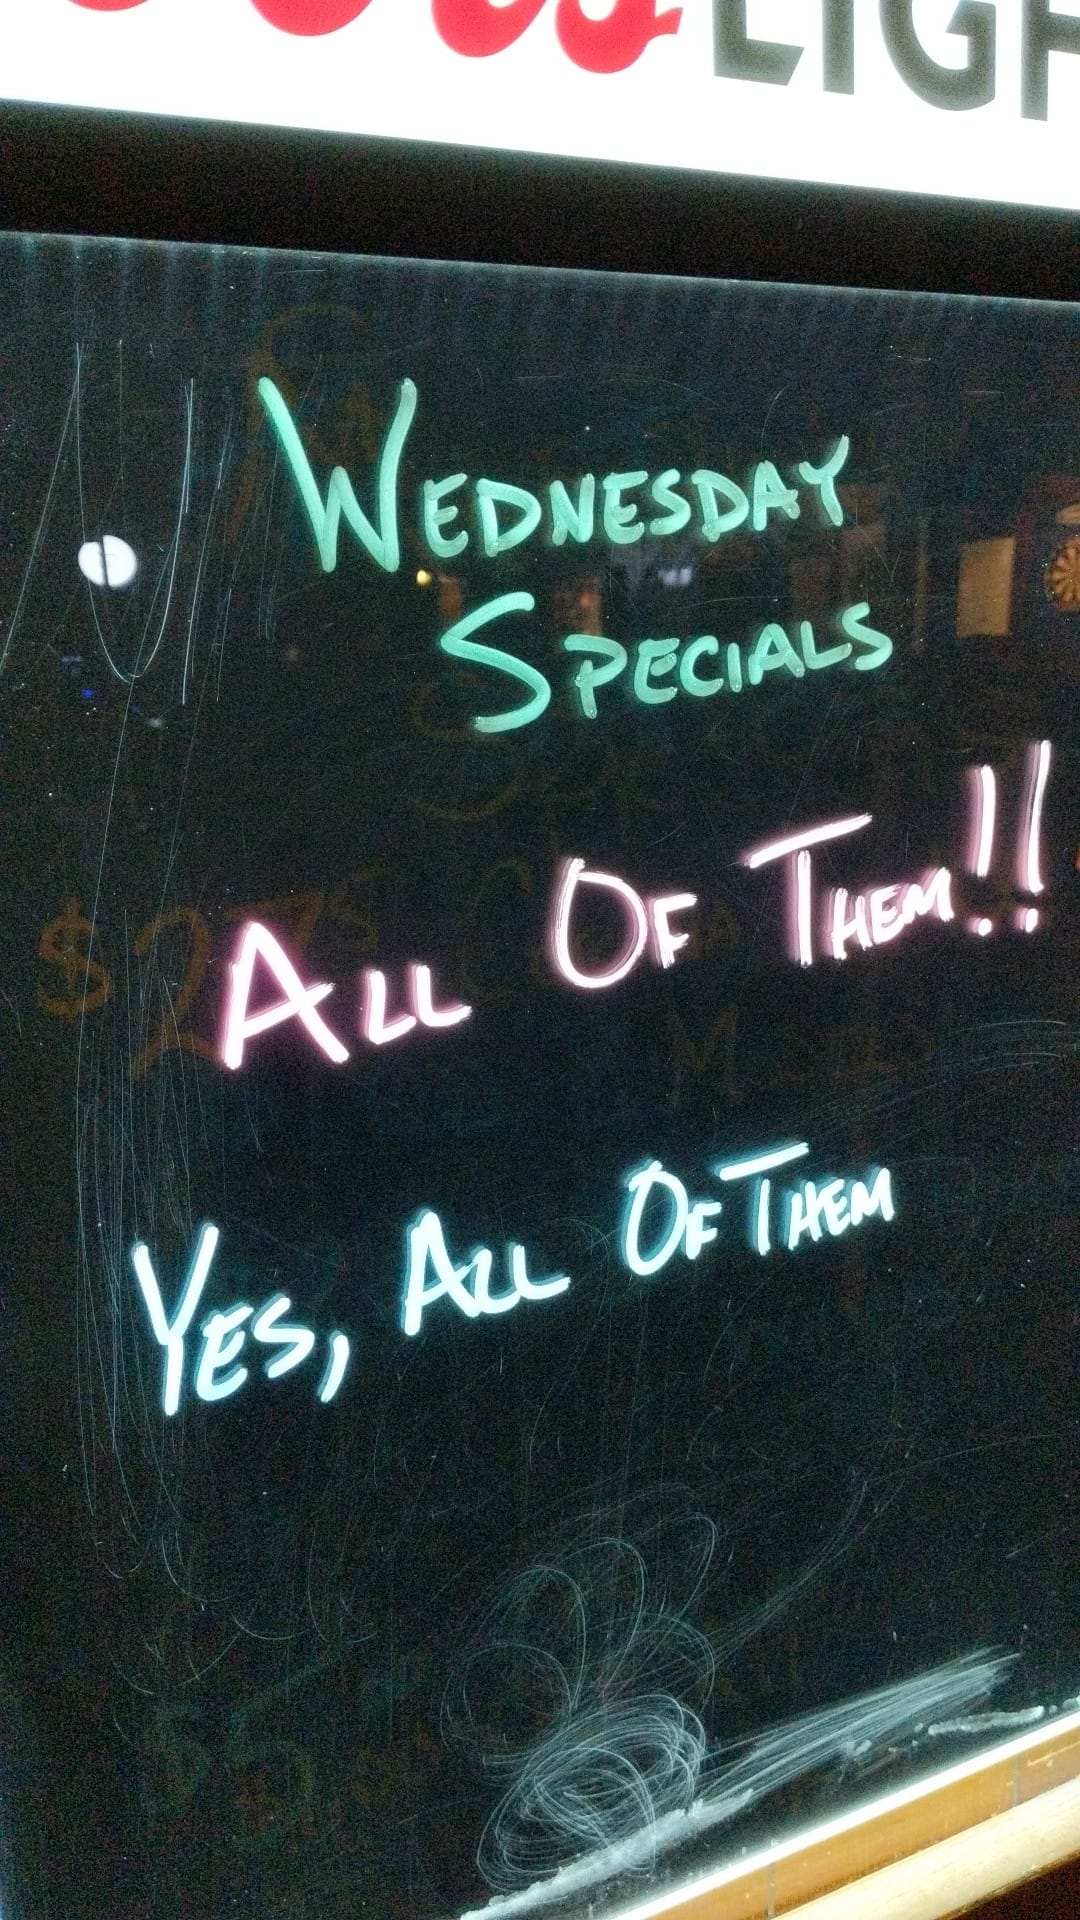 Coors LIGH
WEDNESDAY
SPECIALS
ALL OF THEM!!
YES, ALL OF THEM